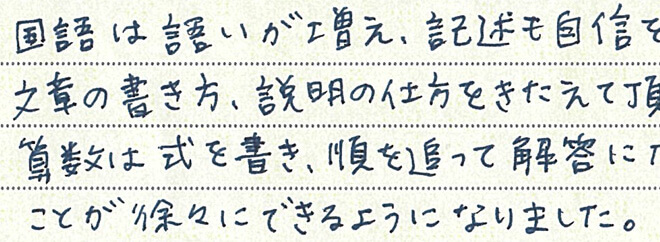 国語は語いが増え、記述も自信を
文章の書き方、説明の仕方をきたえて頂
算数は式を書き、順を追って解答に
ことが徐々にできるようになりました。